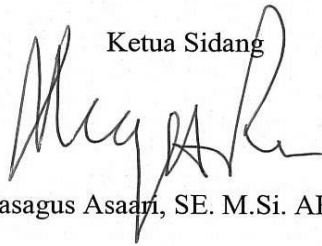 Ketua Sidang
asagus Asaari, SE. M.Si. AK